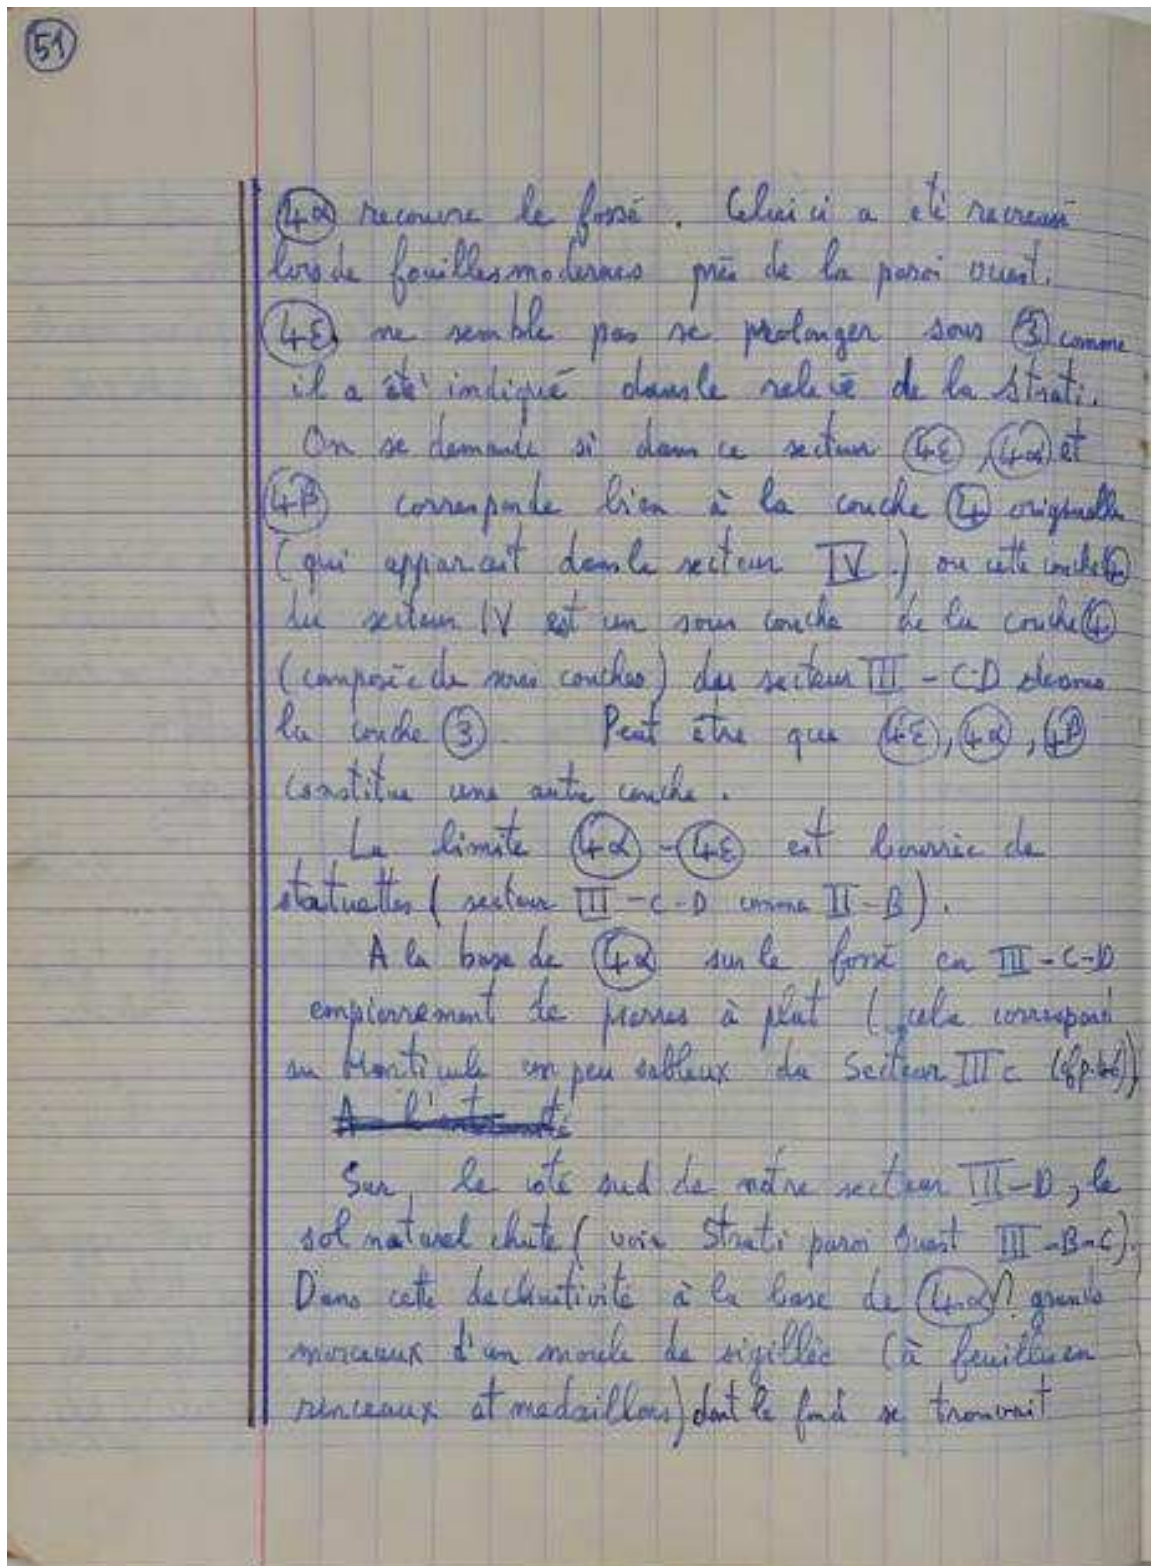 51
4α recouvre le fossé. Celui ci a été recreusé
lors de fouilles modernes près de la paroi ouest.
4ε ne semble pas se prolonger sous 3 comme
il a été indiqué dans le relevé de la strati.
On se demande si dans ce secteur 4ε, 4α et
4β corresponde bien à la couche 4 originelle
(qui apparait dans le secteur IV.) ou cette couche 4
du secteur IV est un sous couche de la couche 4
(composée de sous couches) du secteur III - C-D
la couche 3. Peut être que 4ε, 4α, 4β
constitue une autre couche.
La limite 4α - 4ε est bourrée de
statuettes (secteur III - C - D comme II - B).
A la base de 4α sur le fossé en III - C - D
empierrement de pierres à plat (cela correspond
au monticule un peu sableux du Secteur III c
A l'
Sur le coté sud de notre secteur III - D, le
sol naturel chute (voir Strati paroi Ouest III - B - C).
Dans cette déclinitivité à la base de 4α grands
morceaux d'un moule de sigillée (à feuilles en
rinceaux et medaillons) dont le fond se trouvait